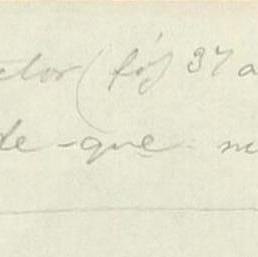 ctor (fój 37 a
de - que m